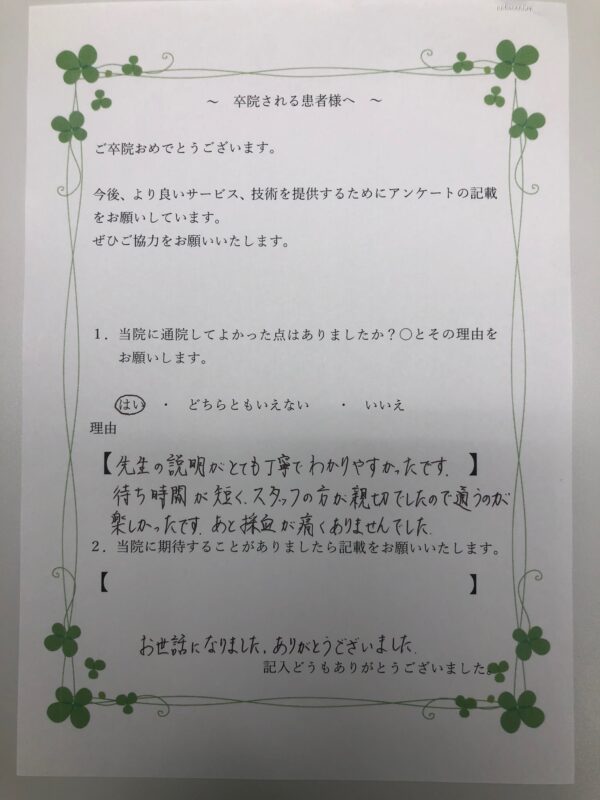 ～　卒院される患者様へ　～
ご卒院おめでとうございます。
今後、より良いサービス、技術を提供するためにアンケートの記載
をお願いしています。
ぜひご協力をお願いいたします。
１．当院に通院してよかった点はありましたか？〇とその理由を
お願いします。
はい　・　どちらともいえない　・　いいえ
理由
【先生の説明がとても丁寧でわかりやすかったです。】
待ち時間が短く、スタッフの方が親切でしたので通うのが
楽しかったです。あと採血が痛くありませんでした。
２．当院に期待することがありましたら記載をお願いいたします。
【　】
お世話になりました。ありがとうございました。
記入どうもありがとうございました。